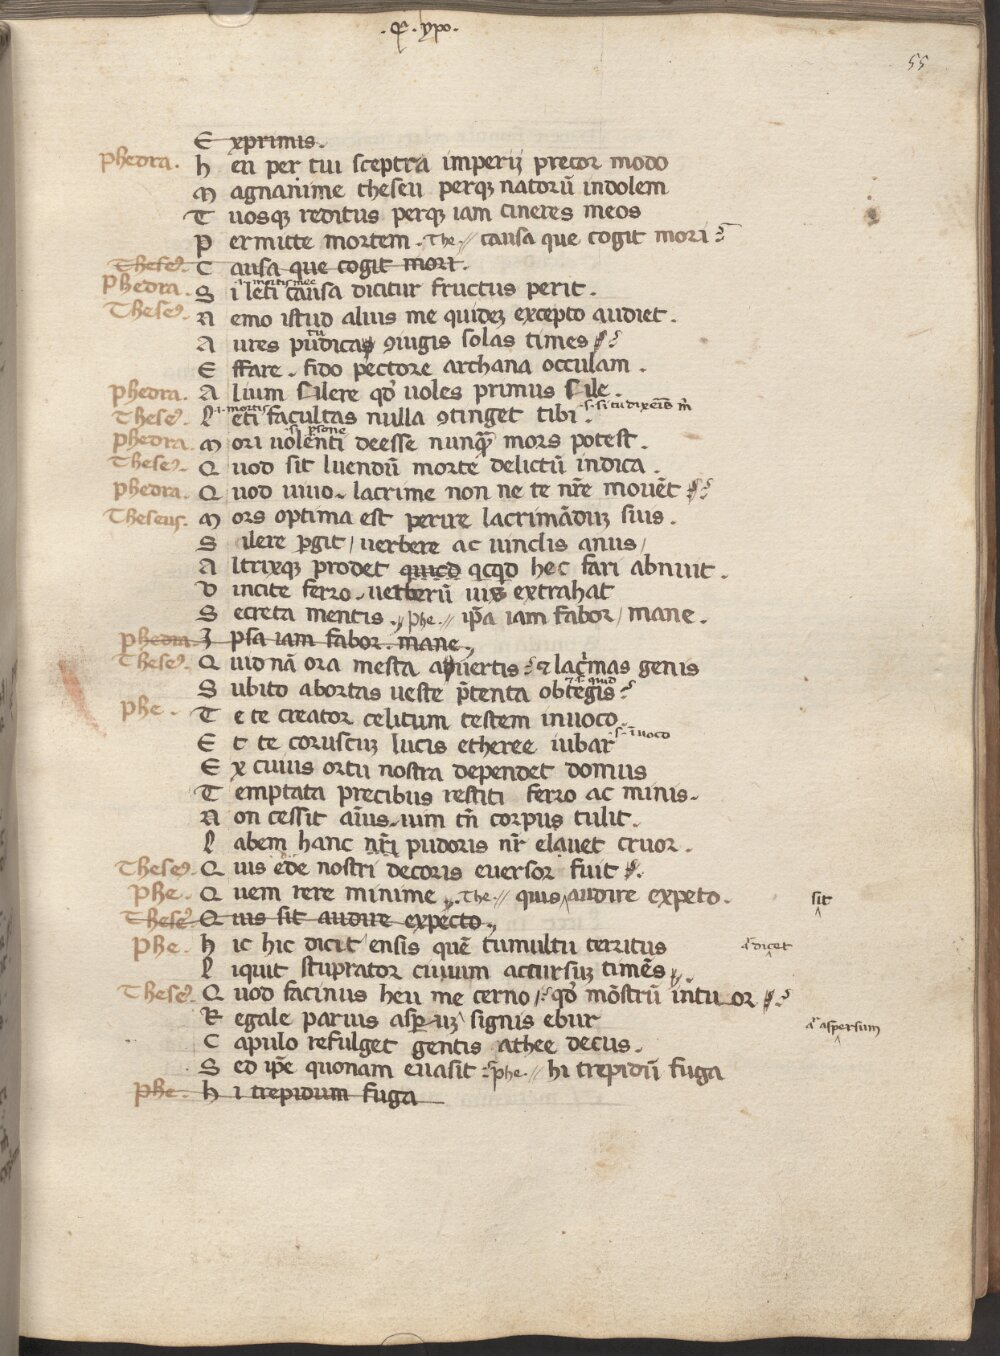 .q̄. ypo.
55
E xprimis.
Phedra. h eu per tui sceptra imperij precor modo
M agnanime theseu perq; natorū indolem
T uosq; reditus perq; iam cineres meos
P ermitte mortem. The. // causa que cogit mori?
Theseꝰ. C ausa que cogit mori.
.i. mortis mee
Phedra. S i leti causa dicitur fructus perit.
Theseꝰ. N emo istud alius me quidez excepto audiet.
A ures pudicas ꝯiugis solas times?
E ffare. fido pectore archana occulam.
Phedra. A lium silere qđ uoles primus sile.
.i. mortis
Theseꝰ. L eti facultas nulla ꝯtinget tibi.
.s. psone
Phedra. M ori uolenti deesse nunqᷓ mors potest.
Theseꝰ. Q uod sit luendū morte delictū indica.
Phedra. Q uod uiuo. lacrime non ne te nr̄e mouēt?
Theseus. M ors optima est perire lacrimāduz suis.
S ilere ꝑgit / uerbere ac uinclis anus /
A ltrixq; prodet quicđ qcqđ hec fari abnuit.
V incite ferro. uerberū uis extrahat
S ecreta mentis. phe. // ip̄a iam fabor / mane.
Phedra. I psa iam fabor. mane.
Theseꝰ. Q uid nā ora mesta auertis? ⁊ lacͥmas genis
S ubito abortas ueste p̄tenta obtegis?
Phe. T e te creator celitum testem inuoco.
.s. īuoco
E t te coruscuz lucis etheree iubar
E x cuius ortu nostra dependet domus
T emptata precibus restiti ferro ac minis.
N on cessit aīus. uim tn̄ corpus tulit.
L abem hanc nr̄i pudoris nr̄ elauet cruor.
Theseꝰ. Q uis ede nostri decoris euersor fuit?
Phe. Q uem rere minime. The. // quis audire expeto. sit
Theseꝰ. Q uis sit audire expecto.
Phe. h ic hic dicit ensis quē tumultu territus aᷓ dicet
L iquit stuprator ciuium accursuz timēs.
Theseꝰ. Q uod facinus heu me cerno? qđ mōstrū intuor?
R egale paruis asꝑuz signis ebur aᷓ aspersum
C apulo refulget gentis athee decus.
S ed ip̄e quonam euasit? phe. // hi trepidū fuga
Phe. h i trepidum fuga